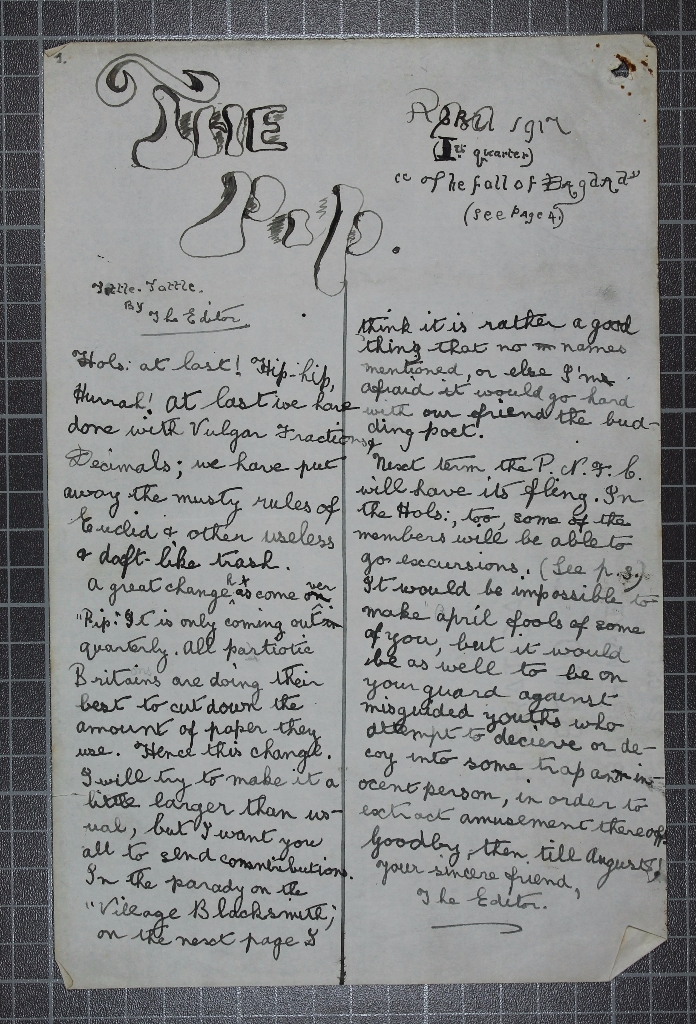 1.
THE
Pip.
April 1917
(Ist quarter)
"of the fall of Bagdad"
(see page 4)
Tittle-Tattle.
By The Editor
Hols: at last! Hip-hip,
Hurrah! At last we have
done with Vulgar Fractions &
Decimals; we have put
away the musty rules of
Euclid & other useless
& daft-like trash.
A great change has come over
"Pip: It is only coming out
quarterly. All partiotic
Britains are doing their
best to cut down the
amount of paper they
use. Hence this change.
I will try to make it a
little larger than us-
ual, but I want you
all to send contributions.
In the parady on the
"Village Blacksmith,"
on the next page I
think it is rather a good
thing that no names
mentioned, or else I'm
afraid it would go hard
with our friend the bud-
ding poet.
Next term the P. N. F. C.
will have its fling. In
the Hols:, too, some of the
members will be able to
go excursions. (See p. 3.)
It would be impossible to
make april fools of some
of you, but it would
be as well to be on
your guard against
misguided youths who
attempt to decieve or de-
coy into some trap an in-
ocent person, in order to
extract amusement thereoff.
Goodby, then, till August!
Your sincere friend,
The Editor.